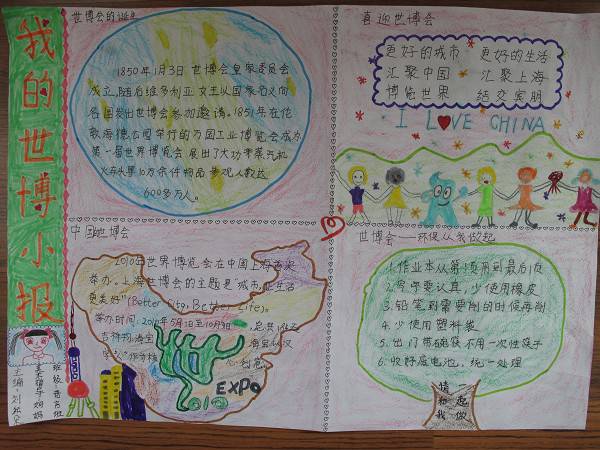 我的世博小报
世博会的诞生
1850年1月3日 世博会皇家委员会
成立,随后维多利亚女王以国家名义向
各国发出世博会参加邀请。1851年在伦
敦海德公园举行的万国工业博览会成为
第一届世界博览会 展出了大功率蒸汽机
10万余件物品 参观人数达
600多万人。
喜迎世博会
更好的城市 更好的生活
汇聚中国 汇聚上海
博览世界 结交宾朋
I LOVE CHINA
中国世博会
2010年世界博览会在中国上海
举办。上海世博会的主题是"城市,让生活
更美好"(Better City, Better Life)。
举办时间:2010年5月1日至10月
吉祥物:海宝
EXPO
2010
世博会——环保从我做起
1.作业本从第1页用到最后1页
2.写字要认真,少使用橡皮
3.铅笔到需要削的时候再削
4.少使用塑料袋
5.出门带碗筷不用一次性筷子
6.收好废电池,统一处理
请和我
一起做
主编